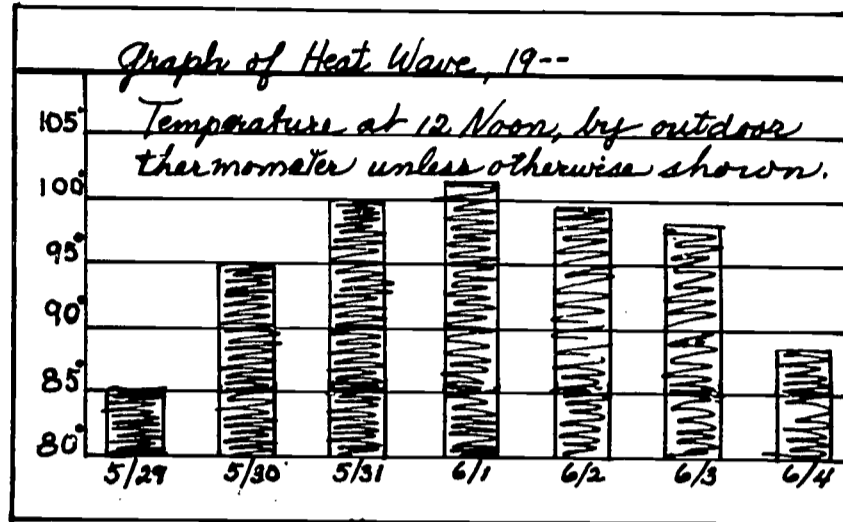 Graph of Heat Wave, 19--
Temperature at 12 Noon, by outdoor
thermometer unless otherwise shown.
105°
100°
95°
90°
85°
80°
5/29 5/30 5/31 6/1 6/2 6/3 6/4